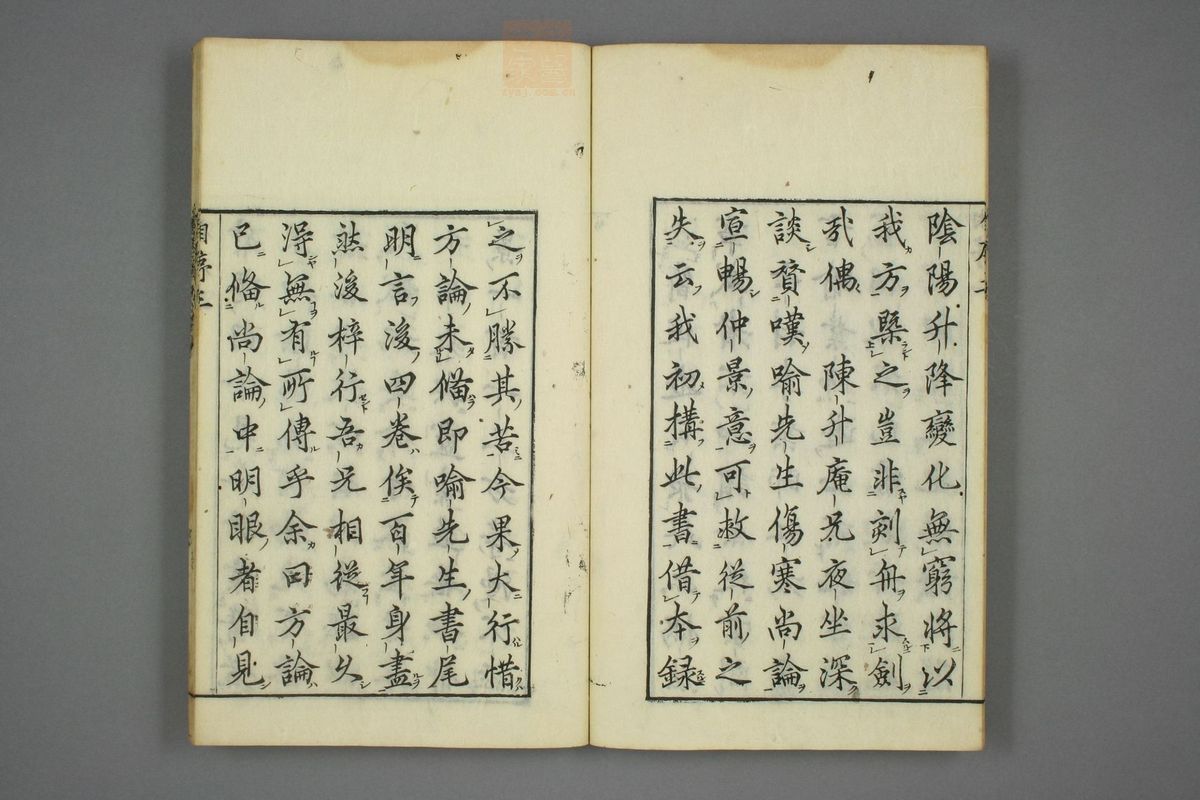 陰陽升降變化無窮將以
我方槩之豈非刻舟求劍
哉偶陳升庵兄夜坐深
談賛嘆喻先生傷寒尚論
宣暢仲景意可救從前之
失云我初構此書借本録
之不勝其苦今果大行惜
方論未偹即喻先生書尾
明言後四卷俟百年身盡
然後梓行吾兄相從最久
得無有所傳乎余曰方論
已偹尚論中明眼者自見
自序三